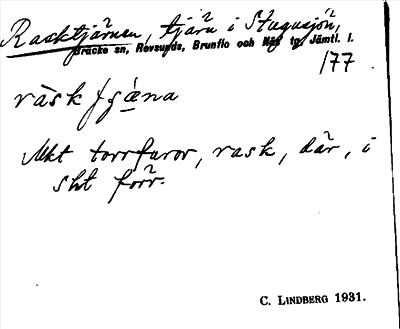 Rasktjärnen, tjärn i Stugusjön,
Bräcke sn, Revsunds, Brunflo och Näs tg, Jämtl. l.
177
Mkt torrfuror, rask, där, i
sht förr.
C. LINDBERG 1931.